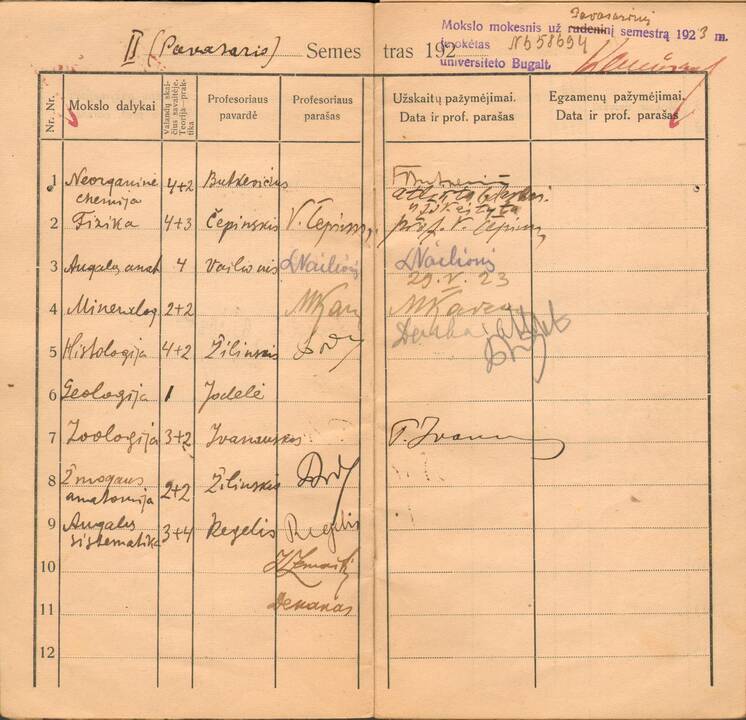 II (Pavasaris) Semestras 192
Pavasarinį
Mokslo mokesnis už rudeninį semestrą 1923 m.
įmokėtas Nb 58694
universiteto Bugalt.
Nr. Nr.
Mokslo dalykai
Valandų skaičius savaitėje. Teorija—praktika
Profesoriaus pavardė
Profesoriaus parašas
Užskaitų pažymėjimai. Data ir prof. parašas
Egzamenų pažymėjimai. Data ir prof. parašas
1 Neorganinė chemija 4+2 Butkevičius
2 Fizika 4+3 Čepinskis V. Čepinskis prof. V. Čepinskis
3 Augalų anat 4 Vailionis LVailionis LVailionis
29.V.23
4 Mineralog 2+2
5 Histologija 4+2 Žilinskis
6 Geologija 1 Jodelė
7 Zoologija 3+2 Ivanauskas
8 Žmogaus anatomija 2+2 Žilinskis
9 Augalų sistematika 3+4 Regelis Regelis
10
Dekanas
11
12